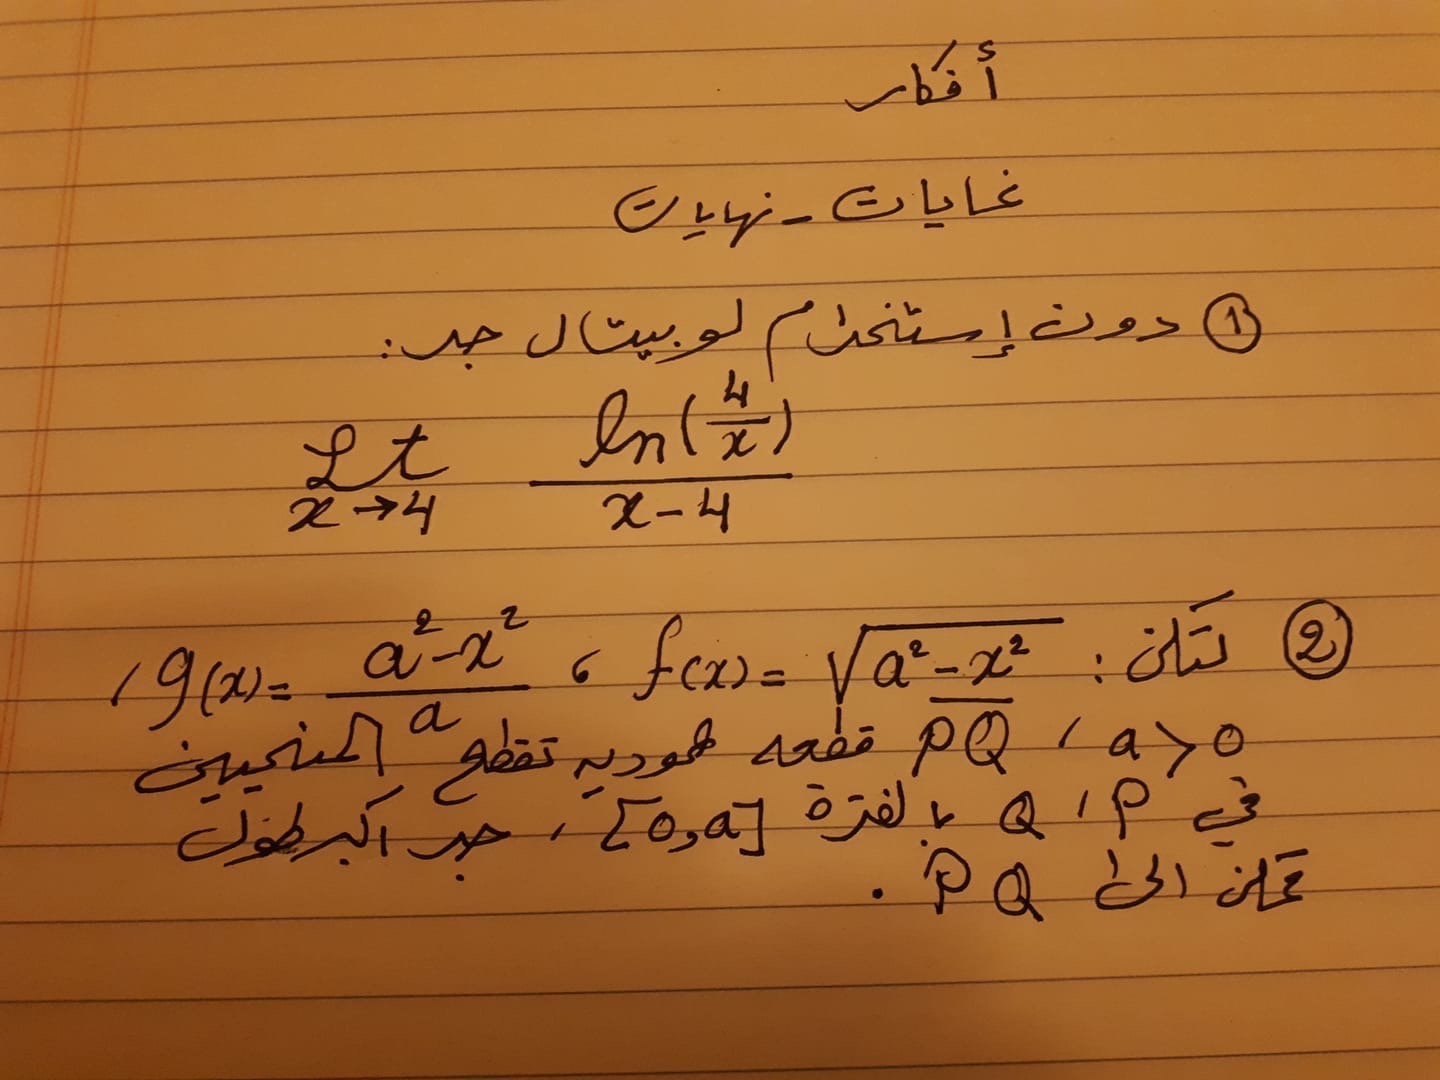 أفكار
غايات - نهايات
① دون إستخدام لوبيتال جد:
Lt x→4 ln(4/x) / x-4
② لتكن: f(x) = √a²-x² ، g(x) = a²-x² / a ،
a > 0 ، PQ قطعه عموديه تقطع المنحيين
في P ، Q بالفترة [0,a] ، جد أكبر طول
ممكن الى PQ .